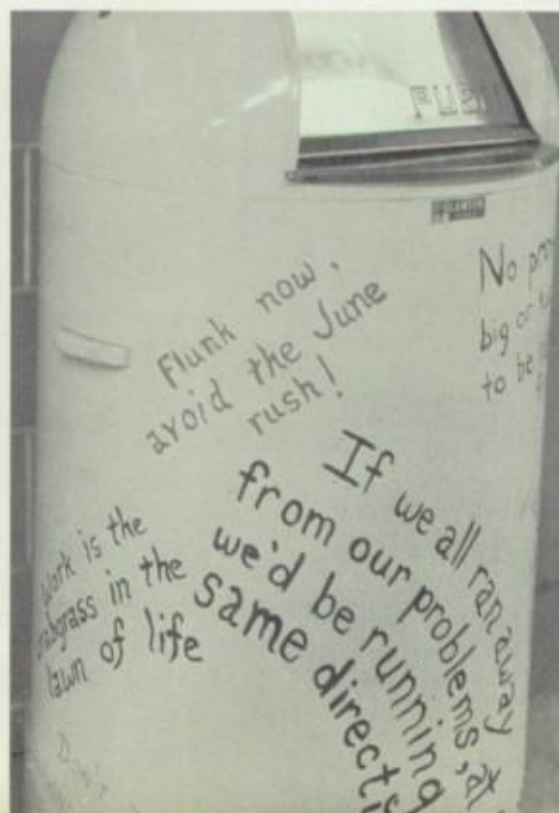 PUSH
Flunk now,
avoid the June
rush!
No
big or
to be
If we all ran away
from our problems, at
we'd be running
same
work is the
crabgrass in the
lawn of life